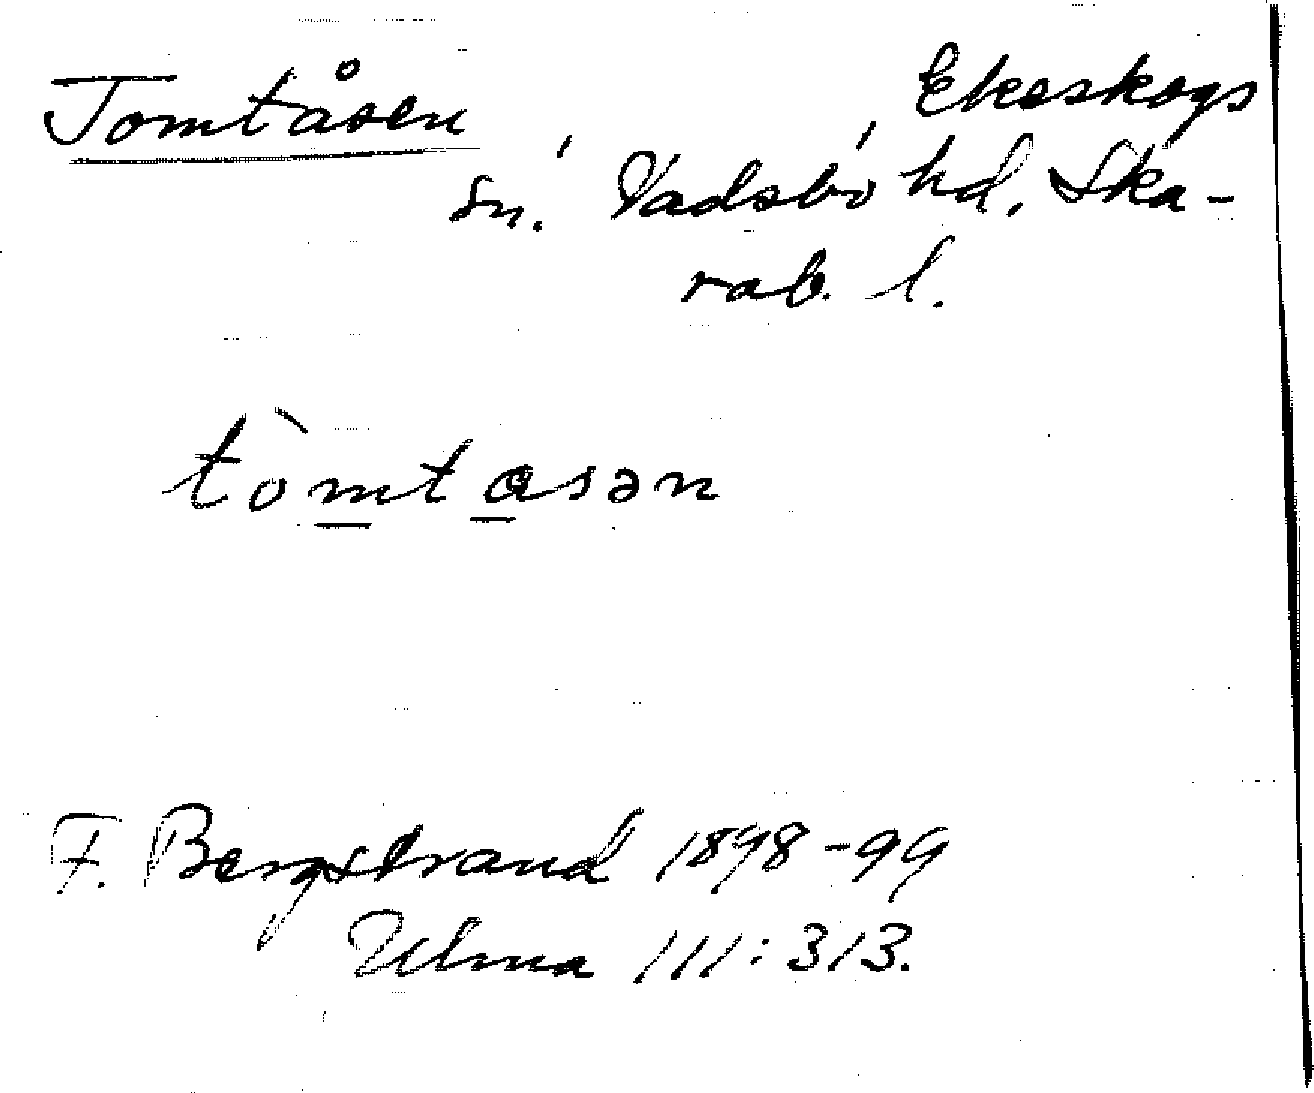 Tomtåsen Ekeskogs
sn. Vadsbo hd, Ska-
rab. l.
tòmtasən
F. Bergstrand 1898-99
Ulma 111:313.